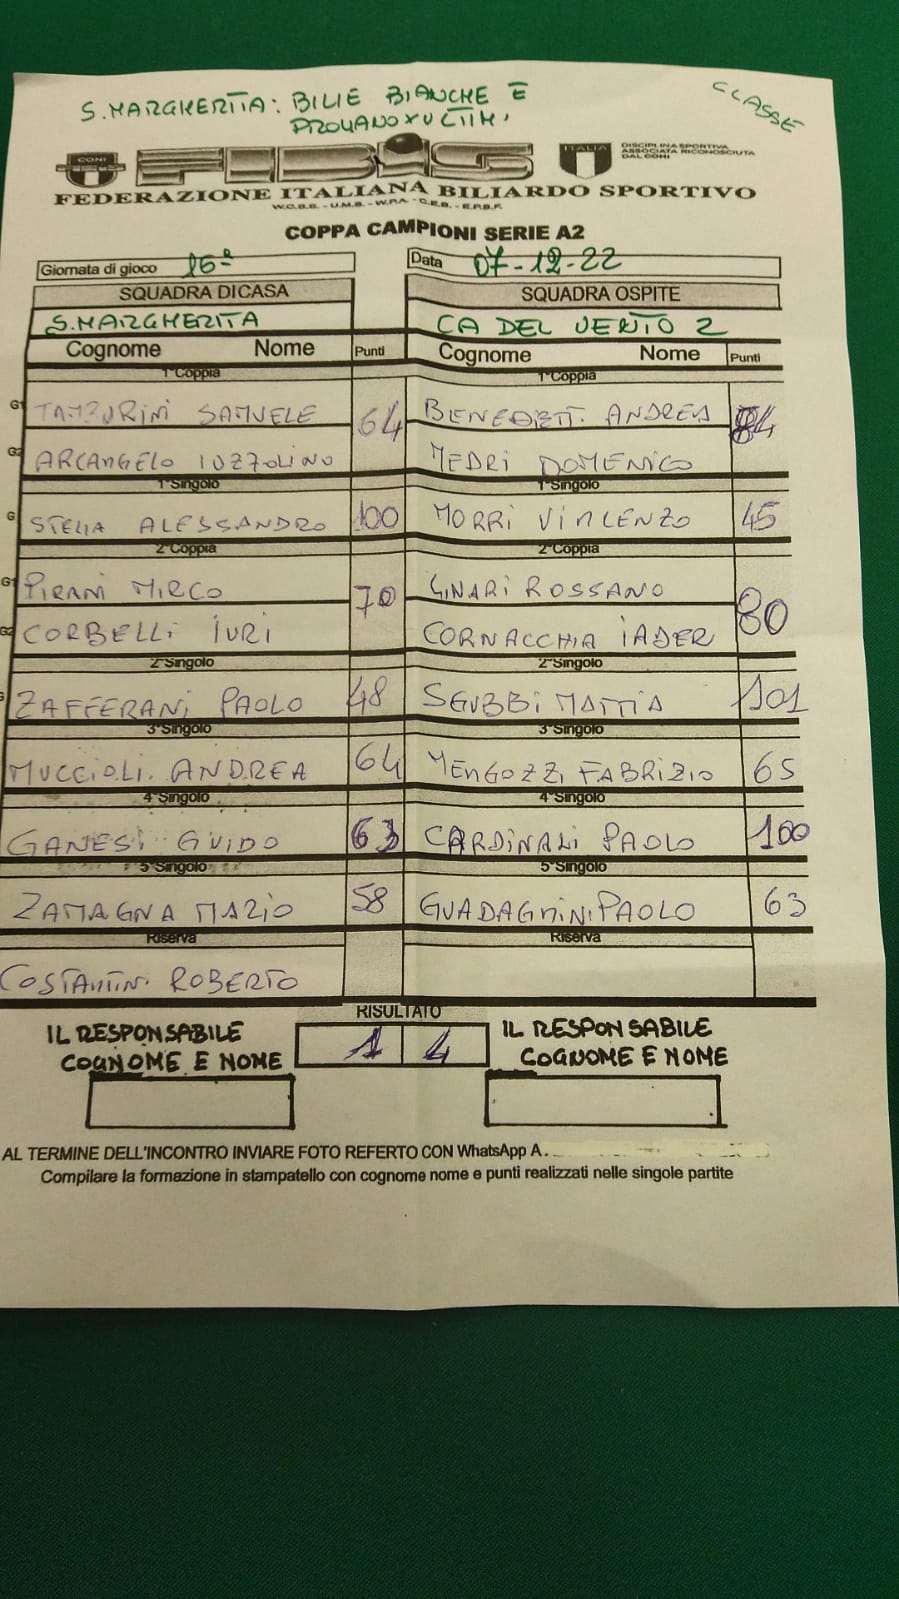 S.MARGHERITA: BILIE BIANCHE E
PROVANO X ULTIMI
CLASSE
CONI FIBIS ITALIA DISCIPLINA SPORTIVA
ASSOCIATA RICONOSCIUTA
DAL CONI
FEDERAZIONE ITALIANA BILIARDO SPORTIVO
W.C.B.S. - U.M.B. - W.P.A. - C.E.B. - E.P.B.F.
COPPA CAMPIONI SERIE A2
Giornata di gioco 16ª Data 07-12-22
SQUADRA DI CASA SQUADRA OSPITE
S.MARGHERITA CA DEL VENTO 2
Cognome Nome Punti Cognome Nome Punti
1°Coppia 1°Coppia
G1 TAMBURINI SAMUELE 64 BENEDETTI ANDREA 84
G2 ARCANGELO IUZZOLINO MEDRI DOMENICO
1°Singolo 1°Singolo
G STELLA ALESSANDRO 100 MORRI VINCENZO 45
2°Coppia 2°Coppia
G1 PIRANI MIRCO 70 GINARI ROSSANO 80
G2 CORBELLI IURI CORNACCHIA IADER
2°Singolo 2°Singolo
G ZAFFERANI PAOLO 48 SGUBBI MATTIA 101
3°Singolo 3°Singolo
MUCCIOLI ANDREA 64 MENGOZZI FABRIZIO 65
4°Singolo 4°Singolo
GANESI GUIDO 63 CARDINALI PAOLO 100
5°Singolo 5°Singolo
ZAMAGNA MAZIO 58 GUADAGNINI PAOLO 63
Riserva Riserva
COSTANTINI ROBERTO
RISULTATO
IL RESPONSABILE 1 4 IL RESPONSABILE
COGNOME E NOME COGNOME E NOME
AL TERMINE DELL'INCONTRO INVIARE FOTO REFERTO CON WhatsApp A
Compilare la formazione in stampatello con cognome nome e punti realizzati nelle singole partite